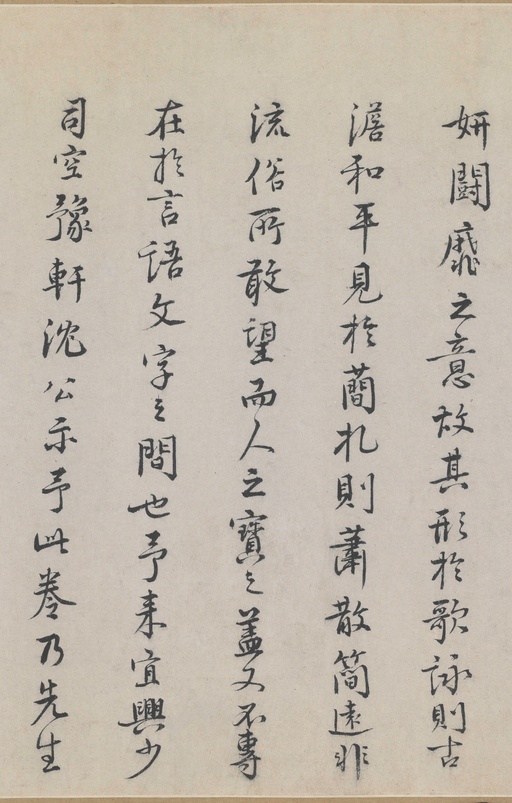 妍鬭靡之意故其形於歌詠則古
澹和平見於蕳札則蕭散簡遠非
流俗所敢望而人之寶之蓋又不專
在於言語文字之間也予来宜興少
司空豫軒沈公示予此卷乃先生